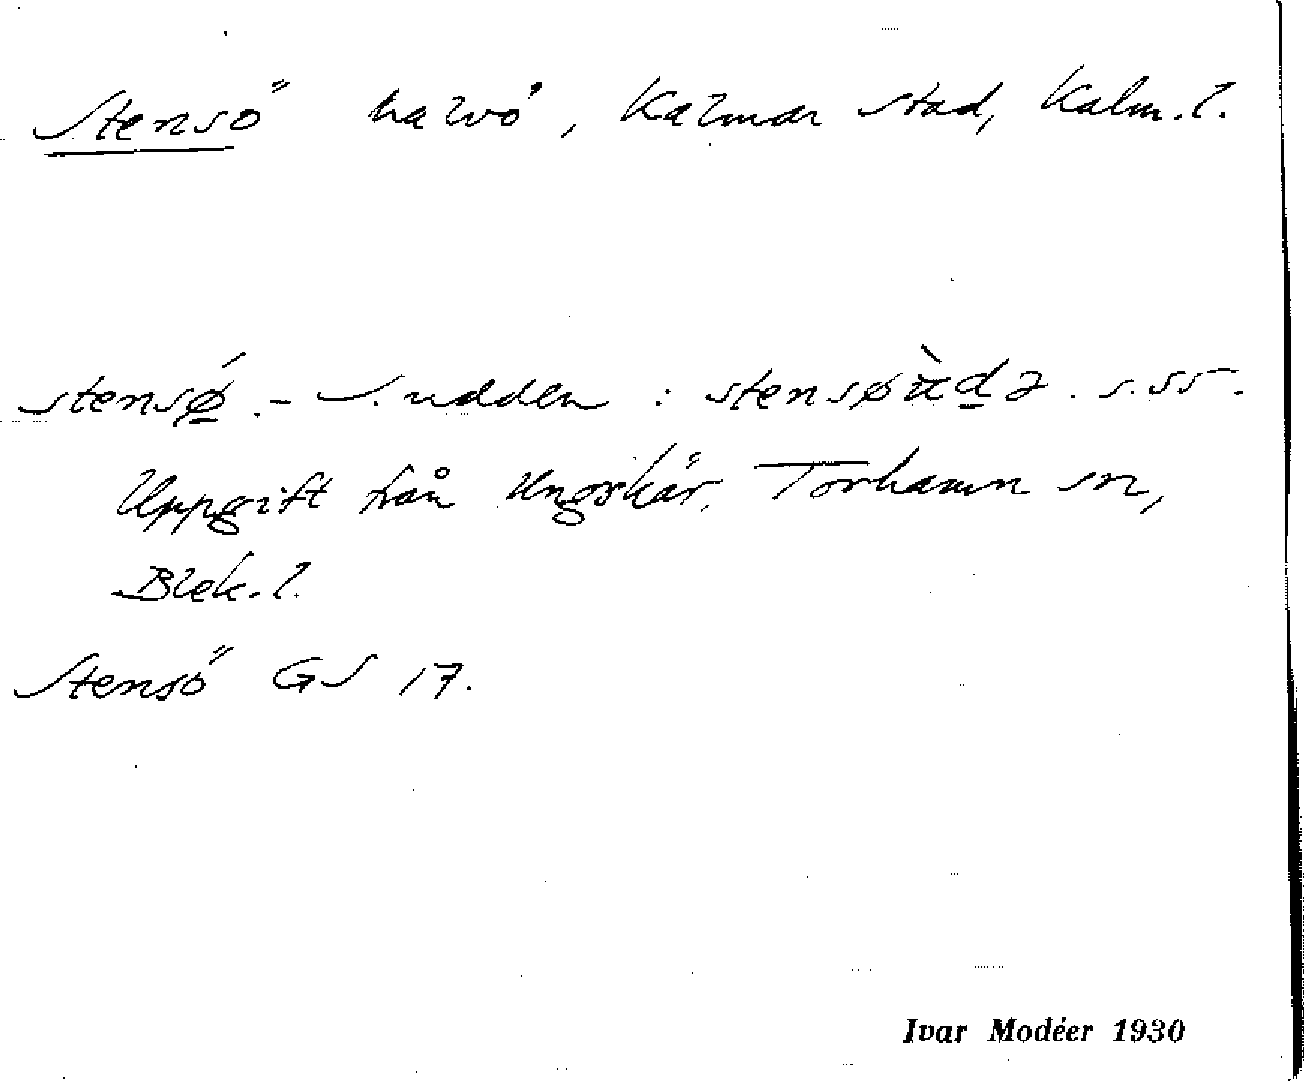 Stensö halvö, Kalmar stad, Kalm. l.
stensǿ. – S. udden : stensøùdə . s. 55.
Uppgift från Ungskär, Torhamn sn,
Blek. l.
Stensö GS 17.
Ivar Modéer 1930